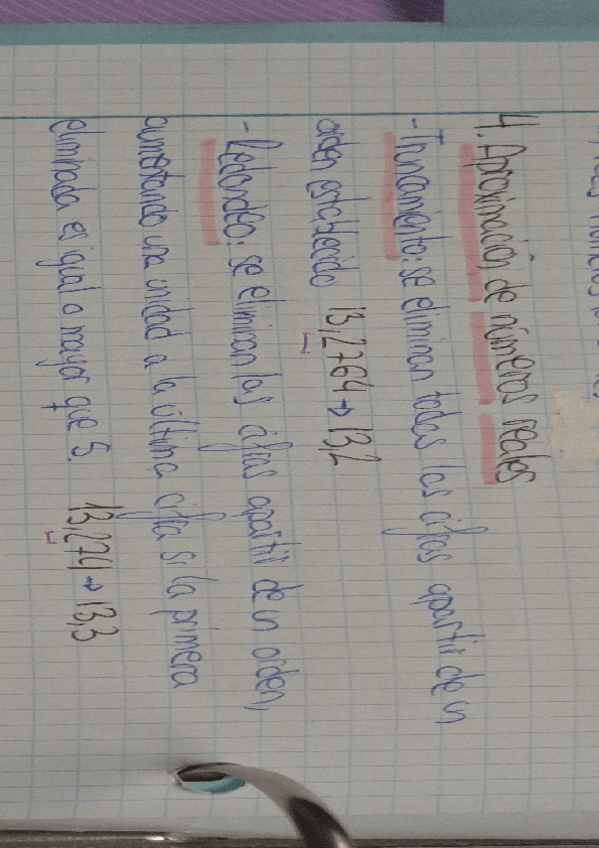 4. Aproximación de números reales
- Truncamiento: se eliminan todas las cifras apartir de un
orden establecido 13,2764 → 13,2
- Redondeo: se eliminan las cifras apartir de un orden,
aumentando una unidad a la última cifra si la primera
eliminada es igual o mayor que 5. 13,274 → 13,3